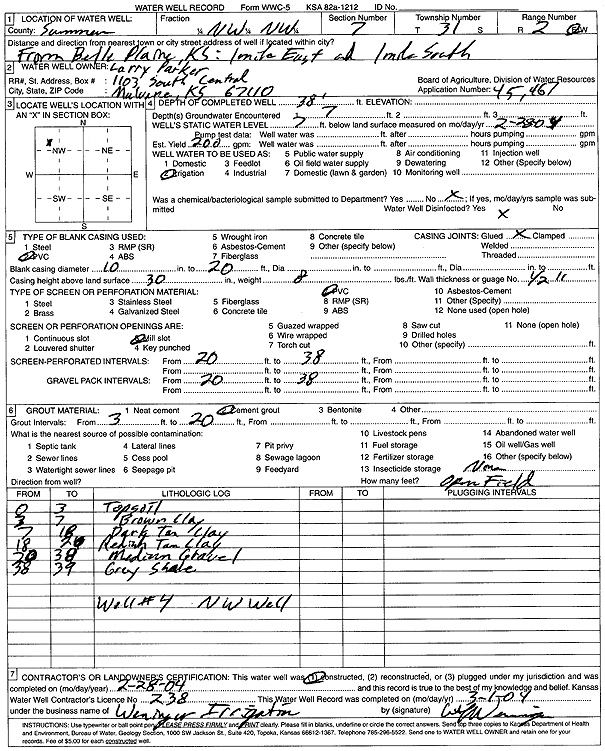 WATER WELL RECORD Form WWC-5 KSA 82a-1212 ID No.
1 LOCATION OF WATER WELL: Fraction Section Number Township Number Range Number
County: Sumner ¼ NW ¼ NW ¼ 7 T 31 S R 2 E/W
Distance and direction from nearest town or city street address of well if located within city?
From Belle Plaine, KS: 1 mile East and 1 mile South
2 WATER WELL OWNER: Larry Parker
RR#, St. Address, Box # : 1103 South Central Board of Agriculture, Division of Water Resources
City, State, ZIP Code : Mulvane KS 67110 Application Number: 45,461
3 LOCATE WELL'S LOCATION WITH AN "X" IN SECTION BOX:
N
X
NW NE
W E
SW SE
S
4 DEPTH OF COMPLETED WELL 38' ft. ELEVATION:
Depth(s) Groundwater Encountered 7 ft. 2 ft. 3 ft.
WELL'S STATIC WATER LEVEL 7 ft. below land surface measured on mo/day/yr 2-28-04
Pump test data: Well water was ft. after hours pumping gpm
Est. Yield 200 gpm: Well water was ft. after hours pumping gpm
WELL WATER TO BE USED AS: 5 Public water supply 8 Air conditioning 11 Injection well
1 Domestic 3 Feedlot 6 Oil field water supply 9 Dewatering 12 Other (Specify below)
2 Irrigation 4 Industrial 7 Domestic (lawn & garden) 10 Monitoring well
Was a chemical/bacteriological sample submitted to Department? Yes No X ; If yes, mo/day/yrs sample was submitted
Water Well Disinfected? Yes X No
5 TYPE OF BLANK CASING USED: 5 Wrought iron 8 Concrete tile CASING JOINTS: Glued X Clamped
1 Steel 3 RMP (SR) 6 Asbestos-Cement 9 Other (specify below) Welded
2 PVC 4 ABS 7 Fiberglass Threaded
Blank casing diameter 10 in. to 20 ft., Dia in. to ft., Dia in. to ft.
Casing height above land surface 30 in., weight 8 lbs./ft. Wall thickness or guage No. 1/2"
TYPE OF SCREEN OR PERFORATION MATERIAL: 7 PVC 10 Asbestos-Cement
1 Steel 3 Stainless Steel 5 Fiberglass 8 RMP (SR) 11 Other (Specify)
2 Brass 4 Galvanized Steel 6 Concrete tile 9 ABS 12 None used (open hole)
SCREEN OR PERFORATION OPENINGS ARE: 5 Guazed wrapped 8 Saw cut 11 None (open hole)
1 Continuous slot 3 Mill slot 6 Wire wrapped 9 Drilled holes
2 Louvered shutter 4 Key punched 7 Torch cut 10 Other (specify) ft.
SCREEN-PERFORATED INTERVALS: From 20 ft. to 38 ft., From ft. to ft.
From ft. to ft., From ft. to ft.
GRAVEL PACK INTERVALS: From 20 ft. to 38 ft., From ft. to ft.
From ft. to ft., From ft. to ft.
6 GROUT MATERIAL: 1 Neat cement 2 Cement grout 3 Bentonite 4 Other
Grout Intervals: From 3 ft. to 20 ft., From ft. to ft., From ft. to ft.
What is the nearest source of possible contamination: 10 Livestock pens 14 Abandoned water well
1 Septic tank 4 Lateral lines 7 Pit privy 11 Fuel storage 15 Oil well/Gas well
2 Sewer lines 5 Cess pool 8 Sewage lagoon 12 Fertilizer storage 16 Other (specify below)
3 Watertight sewer lines 6 Seepage pit 9 Feedyard 13 Insecticide storage None
Direction from well? How many feet? Open Field
FROM TO LITHOLOGIC LOG FROM TO PLUGGING INTERVALS
0 3 Topsoil
3 7 Brown Clay
7 18 Dark Tan Clay
18 20 Redish Tan Clay
20 38 Medium Gravel
38 39 Grey Shale
Well #4 NW Well
7 CONTRACTOR'S OR LANDOWNER'S CERTIFICATION: This water well was (1) constructed, (2) reconstructed, or (3) plugged under my jurisdiction and was
completed on (mo/day/year) 2-28-04 and this record is true to the best of my knowledge and belief. Kansas
Water Well Contractor's Licence No 238 This Water Well Record was completed on (mo/day/yr) 3-1-04
under the business name of Weninger Irrigation by (signature)
INSTRUCTIONS: Use typewriter or ball point pen. PLEASE PRESS FIRMLY and PRINT clearly. Please fill in blanks, underline or circle the correct answers. Send top three copies to Kansas Department of Health
and Environment, Bureau of Water, Geology Section, 1000 SW Jackson St., Suite 420, Topeka, Kansas 66612-1367. Telephone 785-296-5522. Send one to WATER WELL OWNER and retain one for your
records. Fee of $5.00 for each constructed well.